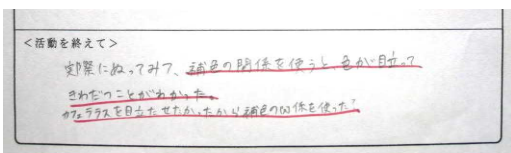 <活動を終えて>
実際にぬってみて、補色の関係を使うと、色が目立って
きわだつことがわかった。
カフェテラスを目立たせたかったから補色の関係を使った?